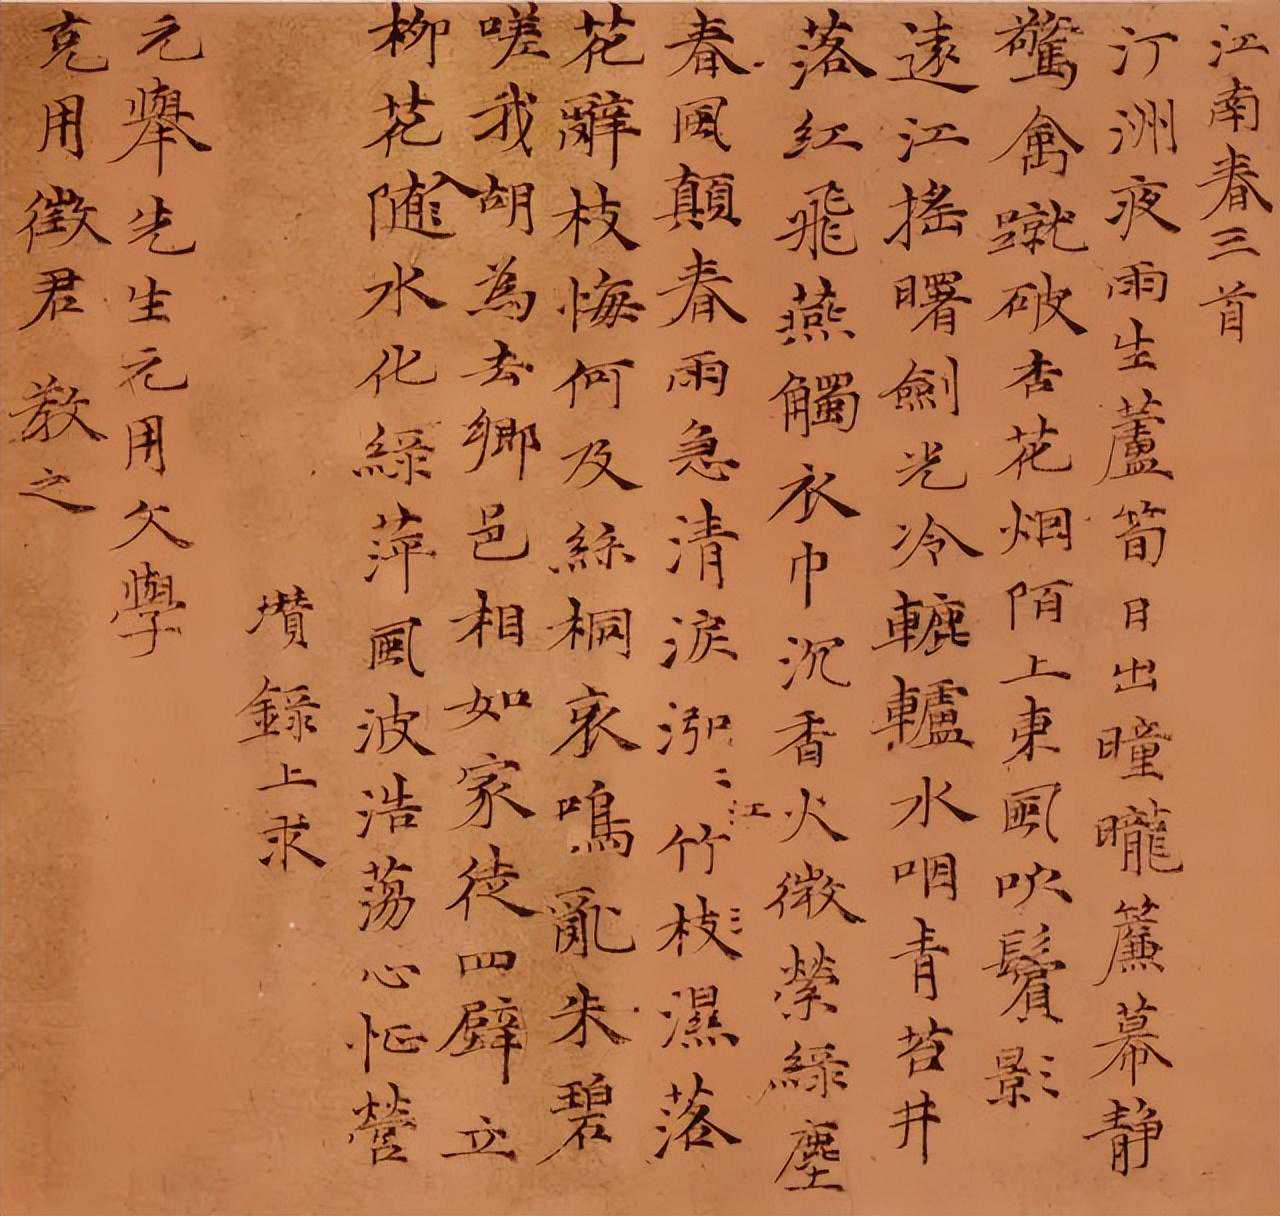 江南春三首
汀洲夜雨生蘆筍日出曈曨簾幕靜
驚禽蹴破杏花烟陌上東風吹鬢影
遠江搖曙劍光冷轆轤水咽青苔井
落紅飛燕觸衣巾沉香火微縈綠塵
春風顛春雨急清淚泓〻江竹枝〻濕落
花辭枝悔何及絲桐哀鳴亂朱碧
嗟我胡為去鄉邑相如家徒四壁立
柳花入隨水化綠萍風波浩蕩心怔營
瓚錄上求
元舉先生元用文學
克用徵君 教之